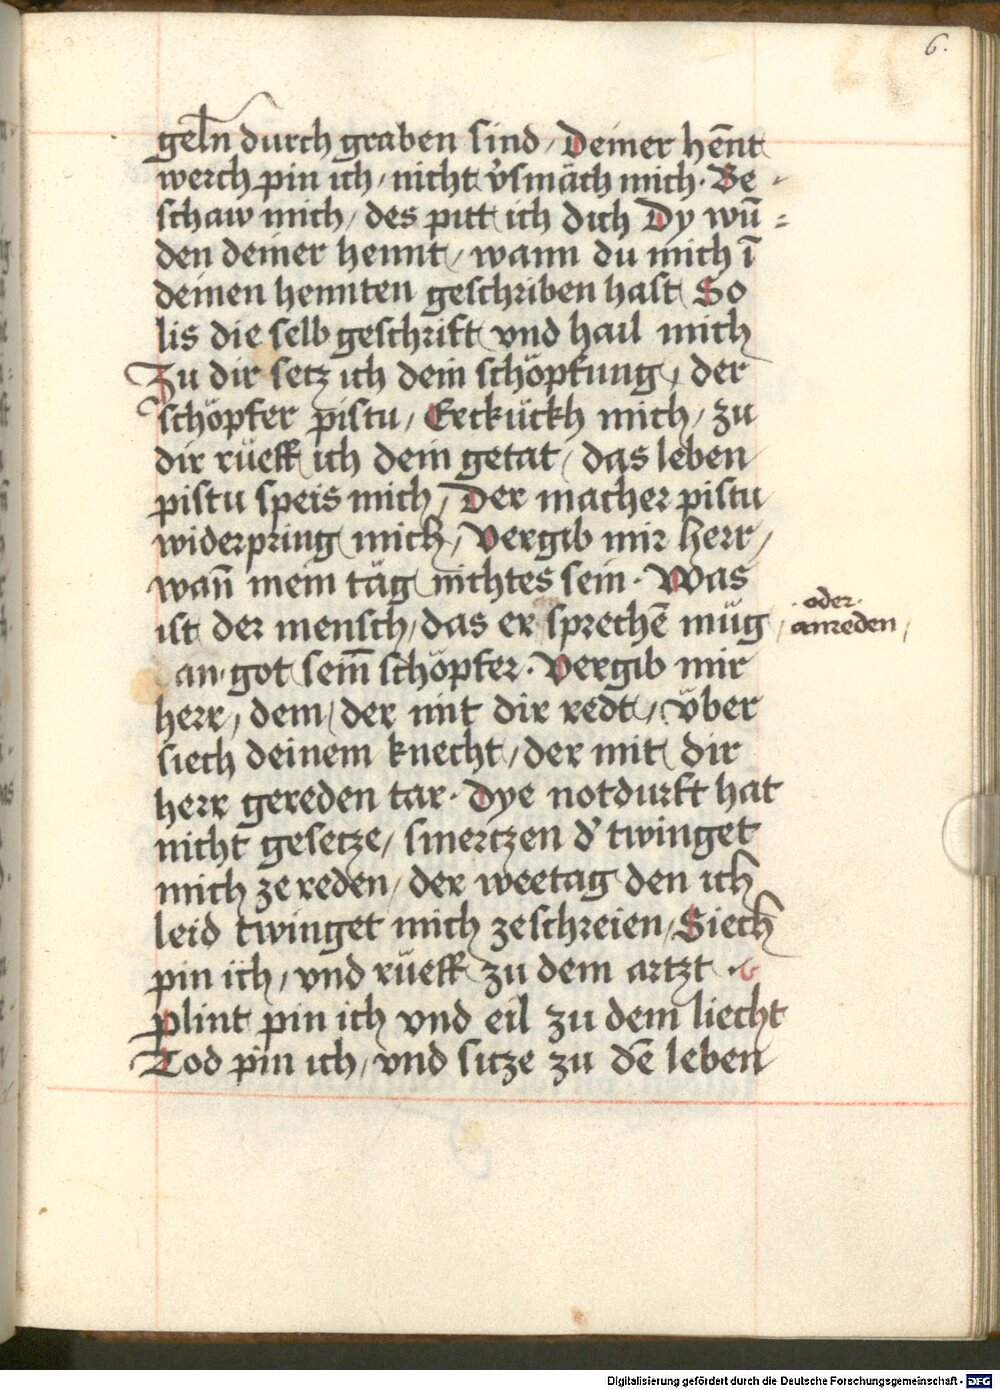 6.
geln̄ durch graben sind / Deiner hēnt
werch pin ich / nicht v̓smäch mich · Be
schaw mich / des pitt ich dich Dy wū =
den deiner hennt / wann du mich ī
deinen hennten geschriben hast So
lis die selb geschrift vnd hail mich
Zu dir setz ich dein schöpfung / der
schöpfer pistu / Erckückh mich / zu
dir rüeff ich dein getat / das leben
pistu speis mich / Der macher pistu
widerpring mich / Vergib mir herr /
wan̄ mein täg nichtes sein · Was
ist der mensch / das er sprechē müg /
· oder ·
anreden /
an · got seim̄ schöpfer · Vergib mir
herr / dem / der mit dir redt / über
siech deinem knecht / der mit dir
herr gereden tar · Dye notdurft hat
nicht gesetze / smertzen d̓ twinget
mich ze reden / der weetag den ich
leid twinget mich zeschreien / Siech
pin ich / vnd rüeff zu dem artzt ·
plint pin ich vnd eil zu dem liecht
Tod pin ich / vnd sitze zu dē leben
Digitalisierung gefördert durch die Deutsche Forschungsgemeinschaft - DFG